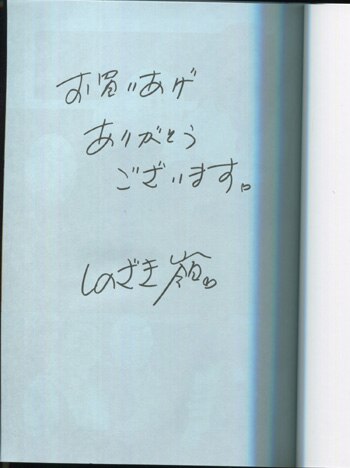 お買いあげ
ありがとう
ございます。
しのざき嶺。